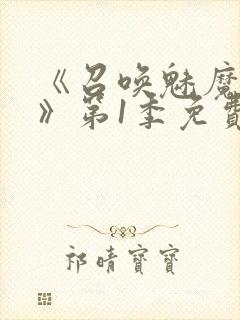 《召唤魅魔
》第1季免费
祁晴寶寶